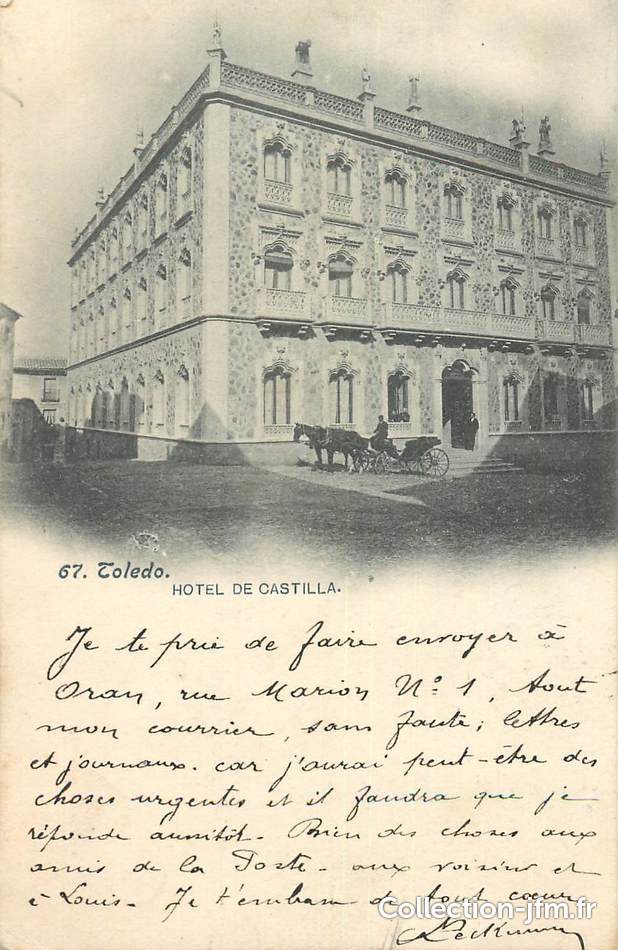 67. Toledo.
HOTEL DE CASTILLA.
Je te prie de faire envoyer à
Oran, rue Marion Nº 1, tout
mon courrier, sans faute; lettres
et journaux. car j'aurai peut-être des
choses urgentes et il faudra que je
réponde aussitôt. Bien des choses aux
amis de la Poste - aux voisins et
à Louis. Je t'embrasse de tout cœur
Collection-jfm.fr